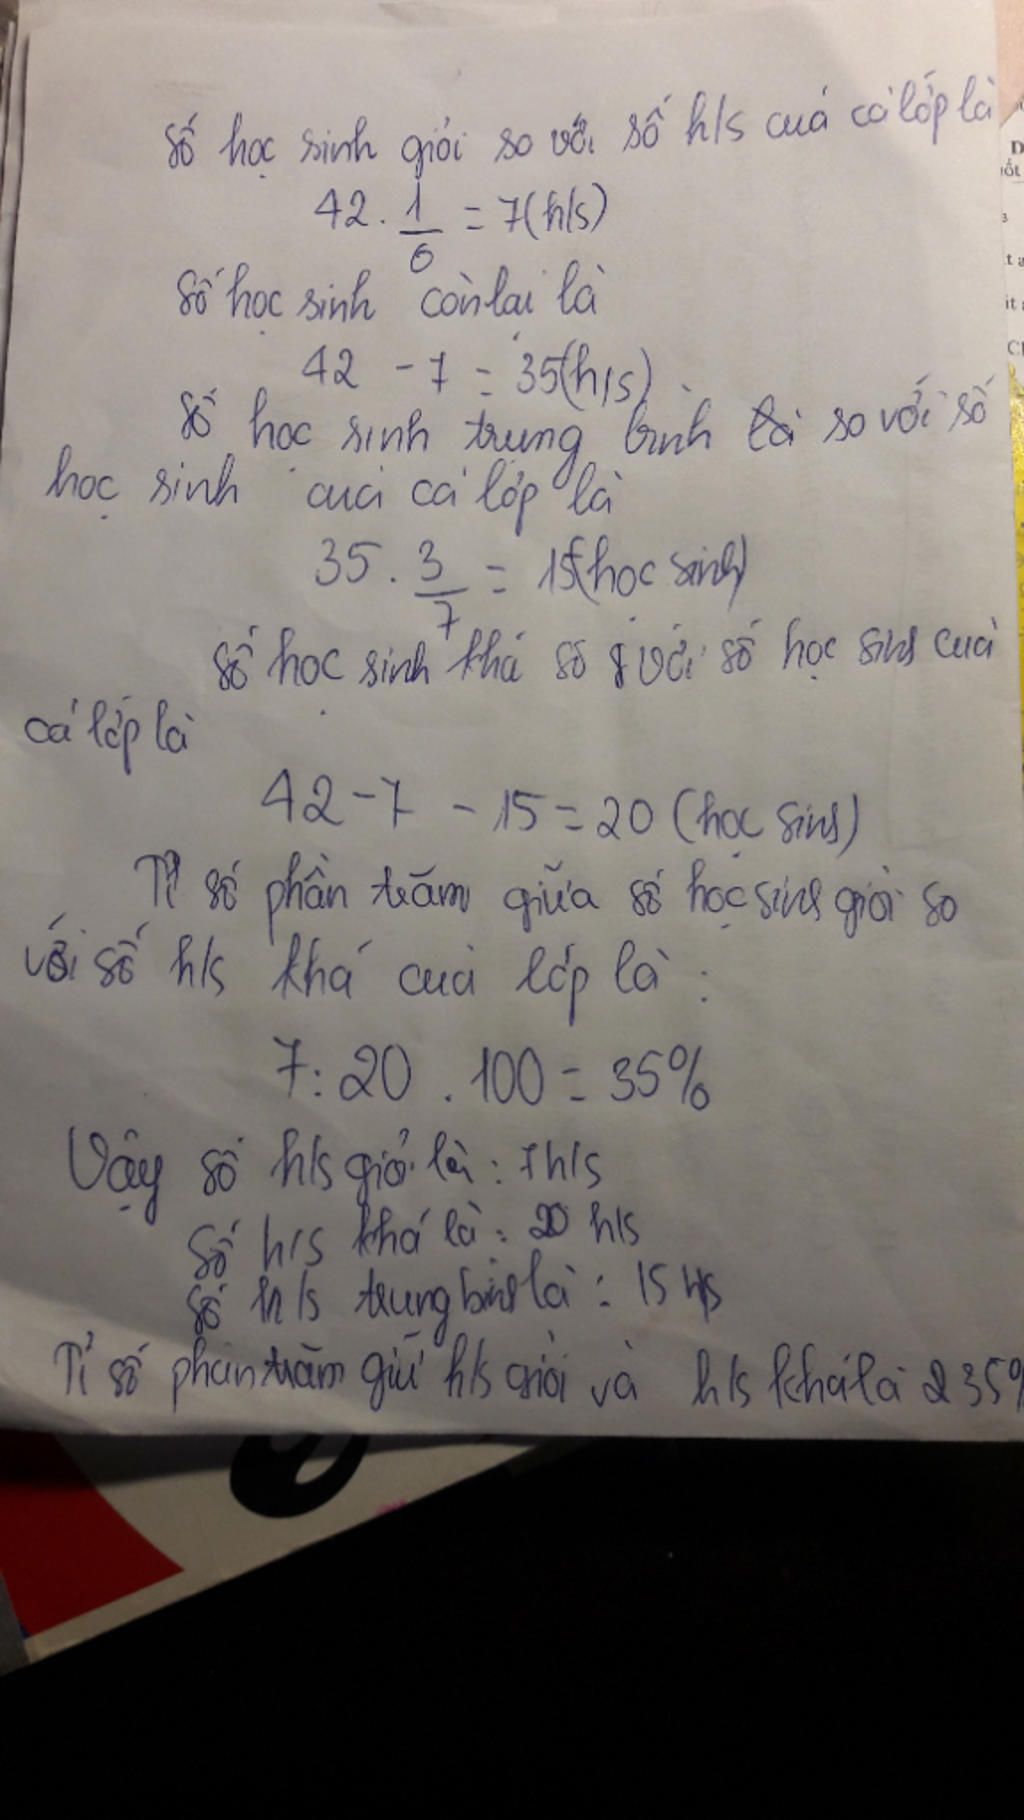 Số học sinh giỏi so với số h/s cuả cả lớp là
42 . 1/6 = 7(h/s)
Số học sinh còn lại là
42 - 7 = 35(h/s)
Số học sinh trung bình so với số
học sinh của cả lớp là
35 . 3/7 = 15(học sinh)
Số học sinh khá so với số học sinh cuả
cả lớp là
42 - 7 - 15 = 20 (học sinh)
Tỉ số phần trăm giữa số học sinh giỏi so
với số h/s khá cuả lớp là :
7 : 20 . 100 = 35%
Vậy số h/s giỏi là : 7h/s
Số h/s khá là : 20 h/s
Số h/s trung bình là : 15 h/s
Tỉ số phần trăm giữ h/s giỏi và h/s khá là 35%
D